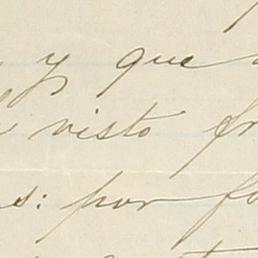 y que
visto fr
s: por fa